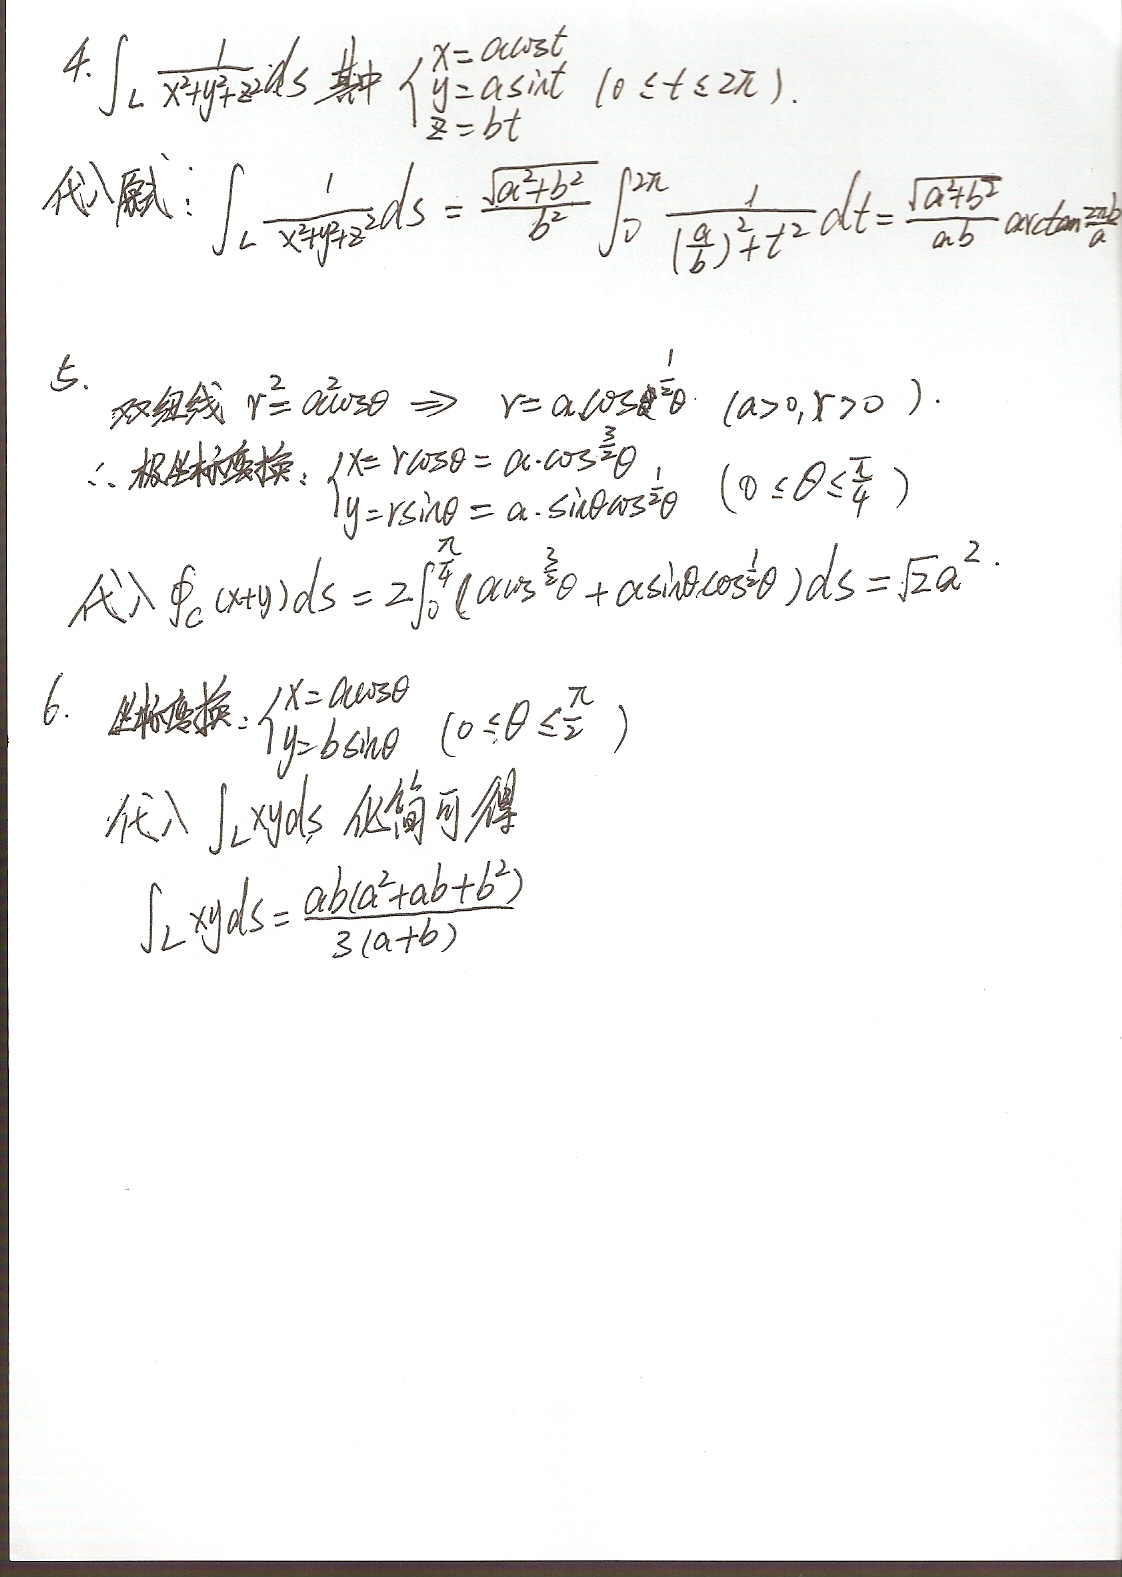 4. ∫_L 1/(x²+y²+z²) ds 其中 { x=acost y=asint z=bt (0≤t≤2π).
代入原式: ∫_L 1/(x²+y²+z²) ds = √(a²+b²)/b² ∫_0^{2π} 1/((a/b)²+t²) dt = √(a²+b²)/(ab) arctan 2πb/a
5.
双纽线 r²=a²cosθ ⇒ r=a cos^{1/2}θ (a>0, r>0).
∴ 极坐标变换: { x=rcosθ=a·cos^{3/2}θ y=rsinθ=a·sinθcos^{1/2}θ (0≤θ≤π/4)
代入 ∮_C (x+y)ds = 2∫_0^{π/4} (acos^{3/2}θ + asinθcos^{1/2}θ)ds = √2a².
6. 坐标变换: { x=acosθ y=bsinθ (0≤θ≤π/2)
代入 ∫_L xyds 化简可得
∫_L xyds = ab(a²+ab+b²)/3(a+b)